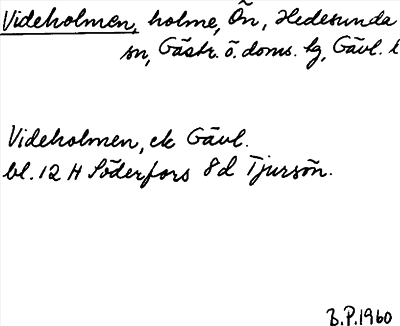 Videholmen, holme, Ön, Hedesunda
sn, Gästr. ö. doms. hg, Gävl. l
Videholmen, ek Gävl.
bl. 12 H Söderfors 8 d Tjursön.
B.P. 1960